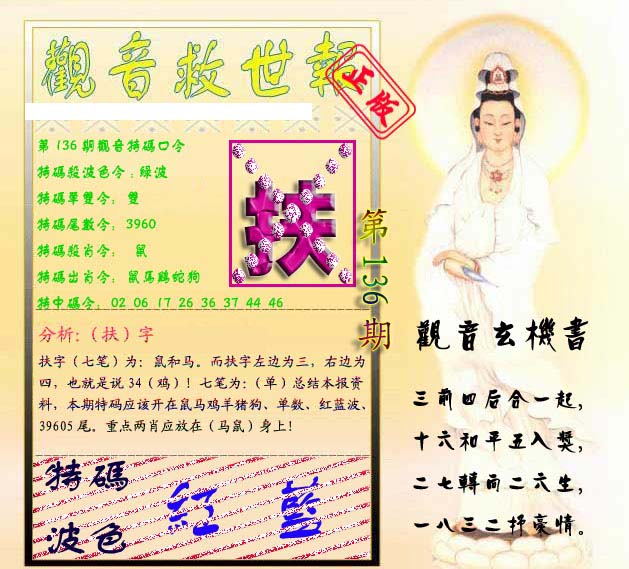 觀音救世報
正版
第136期觀音特碼口令
特碼殺波色令:綠波
特碼單雙令: 雙
特碼尾數令: 3960
特碼殺肖令: 鼠
特碼出肖令: 鼠馬鷄蛇狗
特中碼令: 02 06 17 26 36 37 44 46
扶
第136期
分析:（扶）字
扶字（七笔）为：鼠和马。而扶字左边为三，右边为
四，也就是说34（鸡）！七笔为：（单）总结本报资
料，本期特码应该开在鼠马鸡羊猪狗、单数、红蓝波、
39605尾。重点两肖应放在（马鼠）身上！
特碼
波色
紅 藍
觀音玄機書
三前四后合一起,
十六和平五入獎,
二七轉向二六生,
一八三二抒豪情。